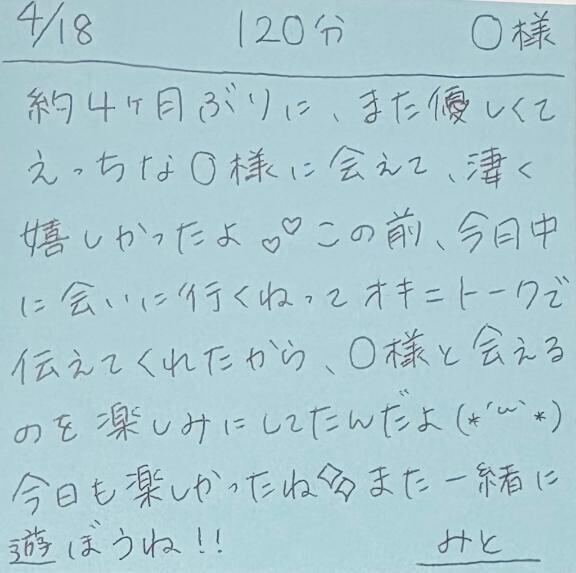 4/18 120分 〇様
約4ヶ月ぶりに、また優しくて
えっちな〇様に会えて、凄く
嬉しかったよ♡♡この前、今月中
に会いに行くねってオキニトークで
伝えてくれたから、〇様と会える
のを楽しみにしてたんだよ(*´ω`*)
今日も楽しかったね また一緒に
遊ぼうね!!
みと